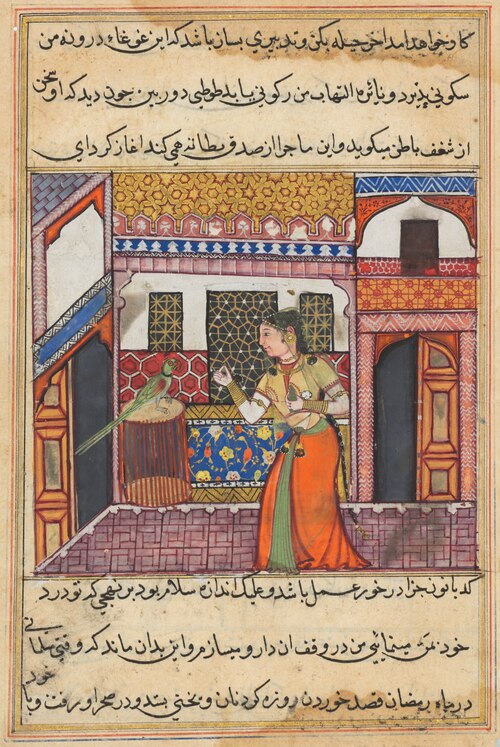 کار و خواهد امد اخر حیله بکن و تدبیری بساز باشد که این غوغاء درونه من
سکونی پذیرد و نایره التهاب من رکونی یابد طوطی دوربین چون دید که او سخن
از شغف باطن میکوید و این ماجرا از صدق بطانه می کند اغاز کرد ای
کدبانو جزا در خور عمل باشد و علیک اندازه سلام بود بر نهجی که تو درد
خود بمن مینمایی من در وقف ان دارو میسازم و این بدان ماند که وقتی سلمانی
در ماه رمضان قصد خوردن روزه کرد نان و بختنی بستد و در صحرا رفت و با
خود